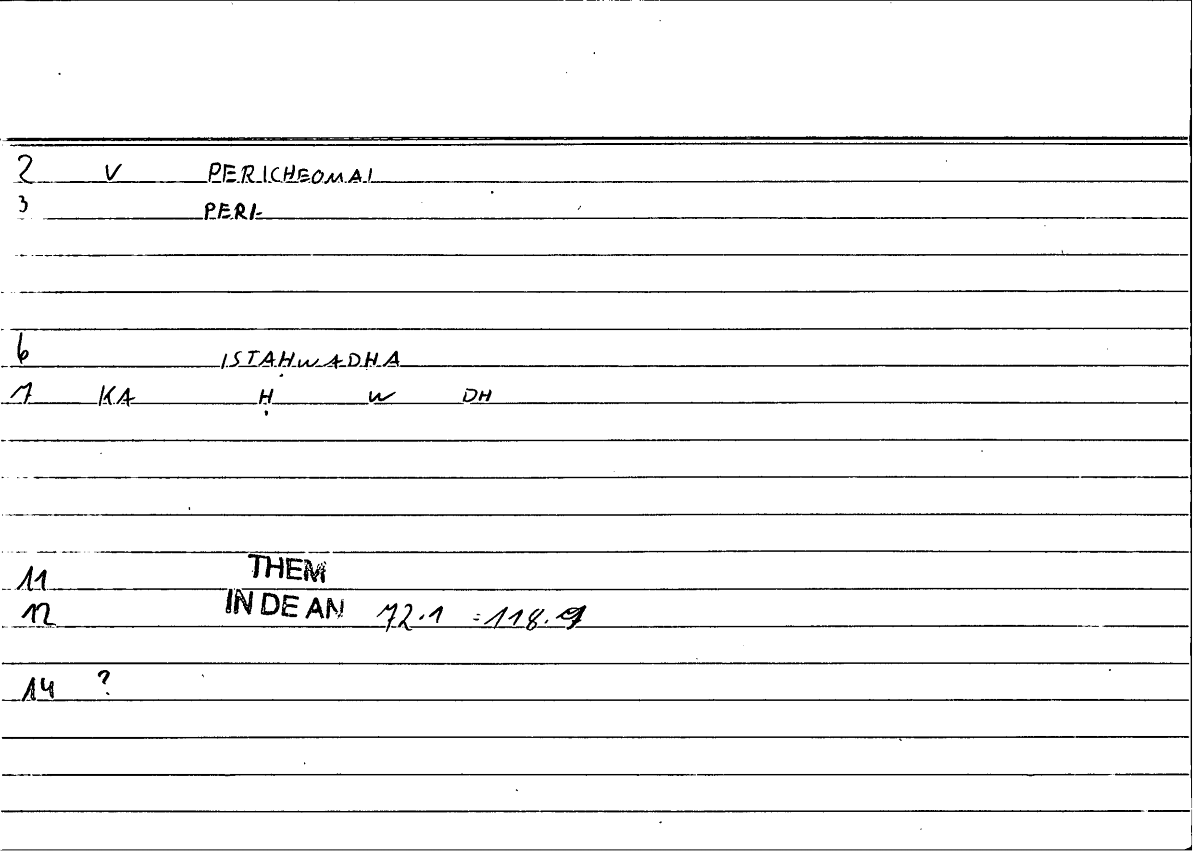 2 V PERICHEOMAI
3 PERI-
6 ISTAḤWADHA
7 KA Ḥ W DH
11 THEM
12 IN DE AN 72.1 =118.9
14 ?